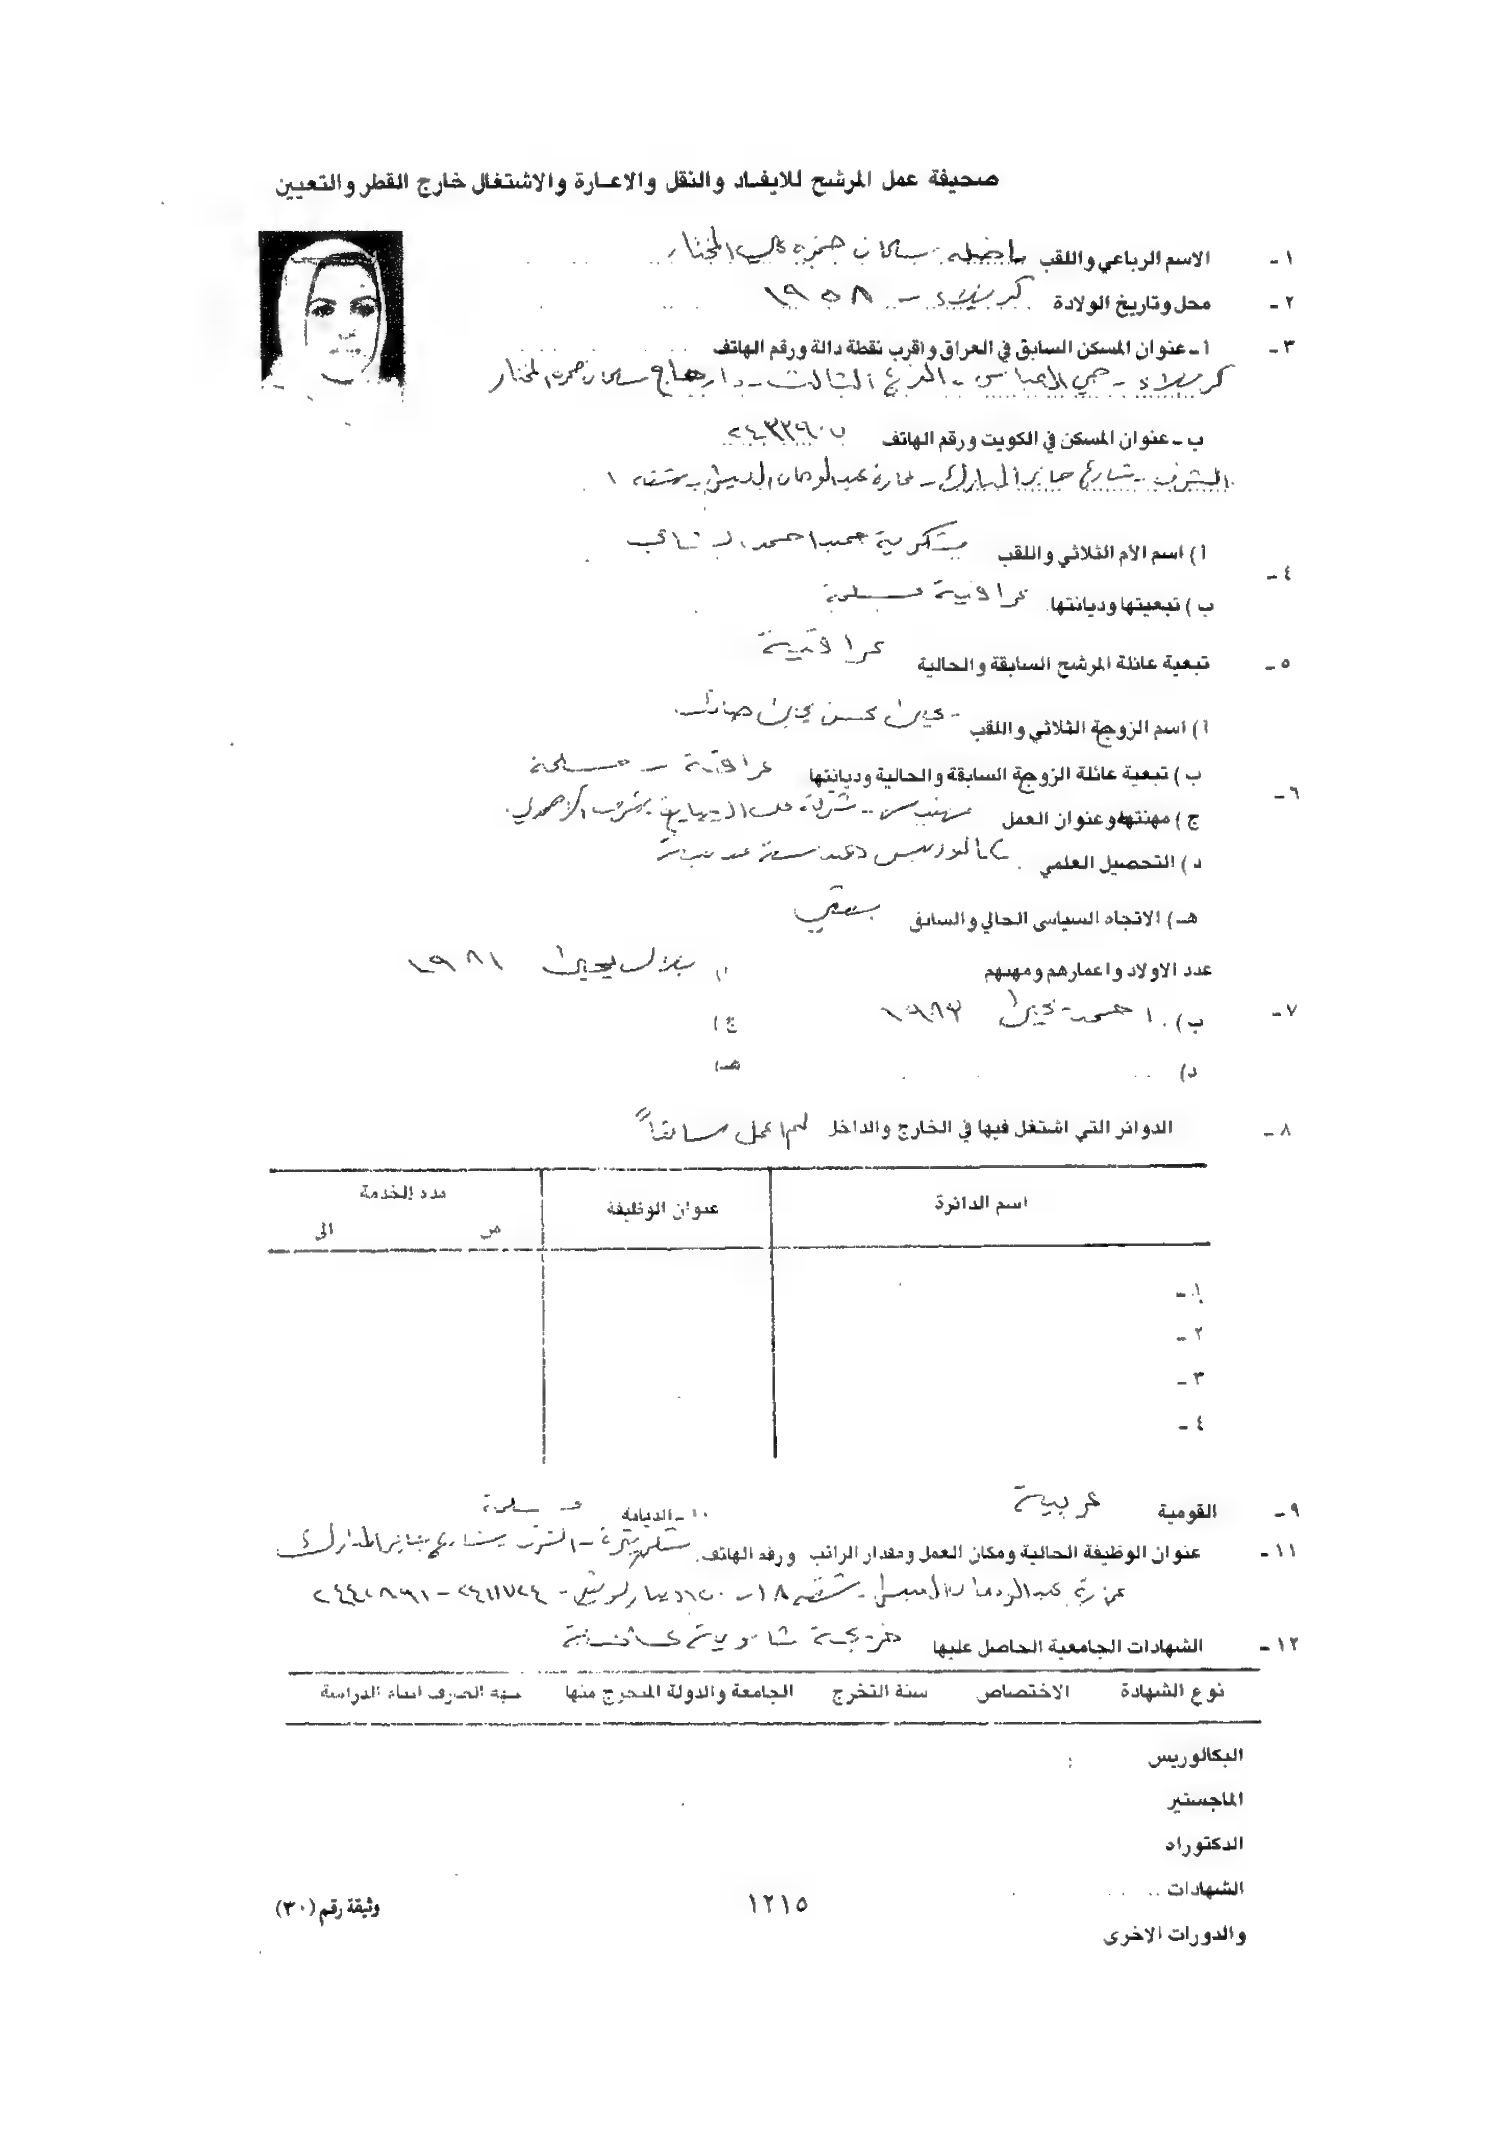 صحيفة عمل المرشح للايفاد والنقل والاعارة والاشتغال خارج القطر والتعيين
١ - الاسم الرباعي واللقب فاضله سلمان حمزه المختار
٢ - محل وتاريخ الولادة كربلاء - ١٩٥٨
٣ - أ - عنوان المسكن السابق في العراق واقرب نقطة دالة ورقم الهاتف
كربلاء - حي العباس - الفرع الثالث - دار حاج سلمان حمزه المختار
ب - عنوان المسكن في الكويت ورقم الهاتف
الشرق - شارع جابر المبارك - عمارة عبدالوهاب - شقه ١
٤ - أ) اسم الام الثلاثي واللقب عبد احمد
ب) تبعيتها وديانتها عراقية مسلمة
٥ - تبعية عائلة المرشح السابقة والحالية عراقية
٦ - أ) اسم الزوجة الثلاثي واللقب يحيى محسن
ب) تبعية عائلة الزوجة السابقة والحالية وديانتها عراقية - مسلمة
ج) مهنتها وعنوان العمل مهندس - شركة
د) التحصيل العلمي بكالوريس هندسة مدنية
هـ) الاتجاه السياسي الحالي والسابق بعثي
٧ - عدد الاولاد واعمارهم ومهنهم أ) بلال يحيى ١٩٨١
ب) احمد يحيى ١٩٨٣ ج)
د) هـ)
٨ - الدوائر التي اشتغل فيها في الخارج والداخل لم اعمل سابقاً
اسم الدائرة عنوان الوظيفة مدد الخدمة
من الى
١ -
٢ -
٣ -
٤ -
٩ - القومية عربية ١٠ - الديانة مسلمة
١١ - عنوان الوظيفة الحالية ومكان العمل ومقدار الراتب ورقم الهاتف سكرتيرة - الشرق - شارع جابر المبارك
عمارة عبدالوهاب - شقه ١٨ - ١٥٠ دينار كويتي - ٢٤١١٧٢٤ -
١٢ - الشهادات الجامعية الحاصل عليها خريجة ثانوية
نوع الشهادة الاختصاص سنة التخرج الجامعة والدولة المتخرج منها جهة الصرف اثناء الدراسة
البكالوريس
الماجستير
الدكتوراه
الشهادات
والدورات الاخرى
١٢١٥
وثيقة رقم (٣٠)